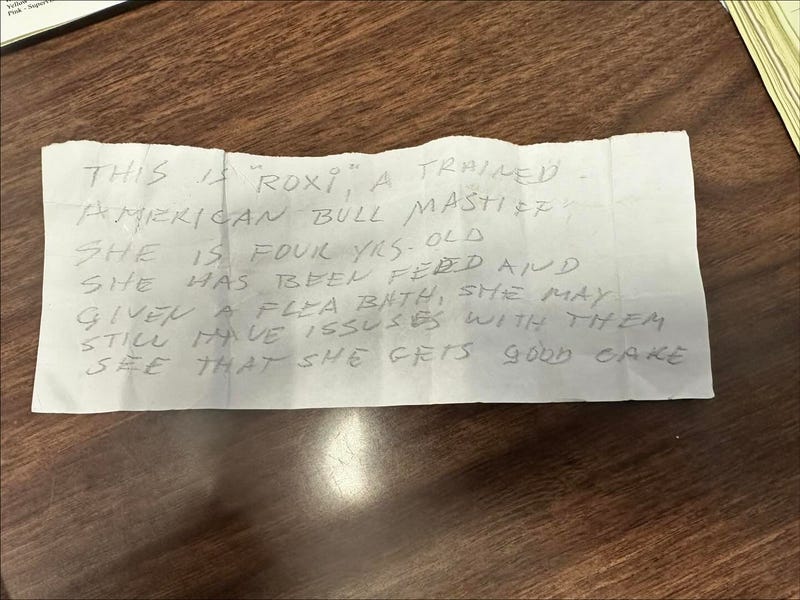 Yellow
Pink - Supervi
THIS IS "ROXI", A TRAINED
AMERICAN BULL MASTIFF,
SHE IS FOUR YRS. OLD
SHE HAS BEEN FEED AND
GIVEN A FLEA BATH, SHE MAY
STILL HAVE ISSUSES WITH THEM
SEE THAT SHE GETS GOOD CARE